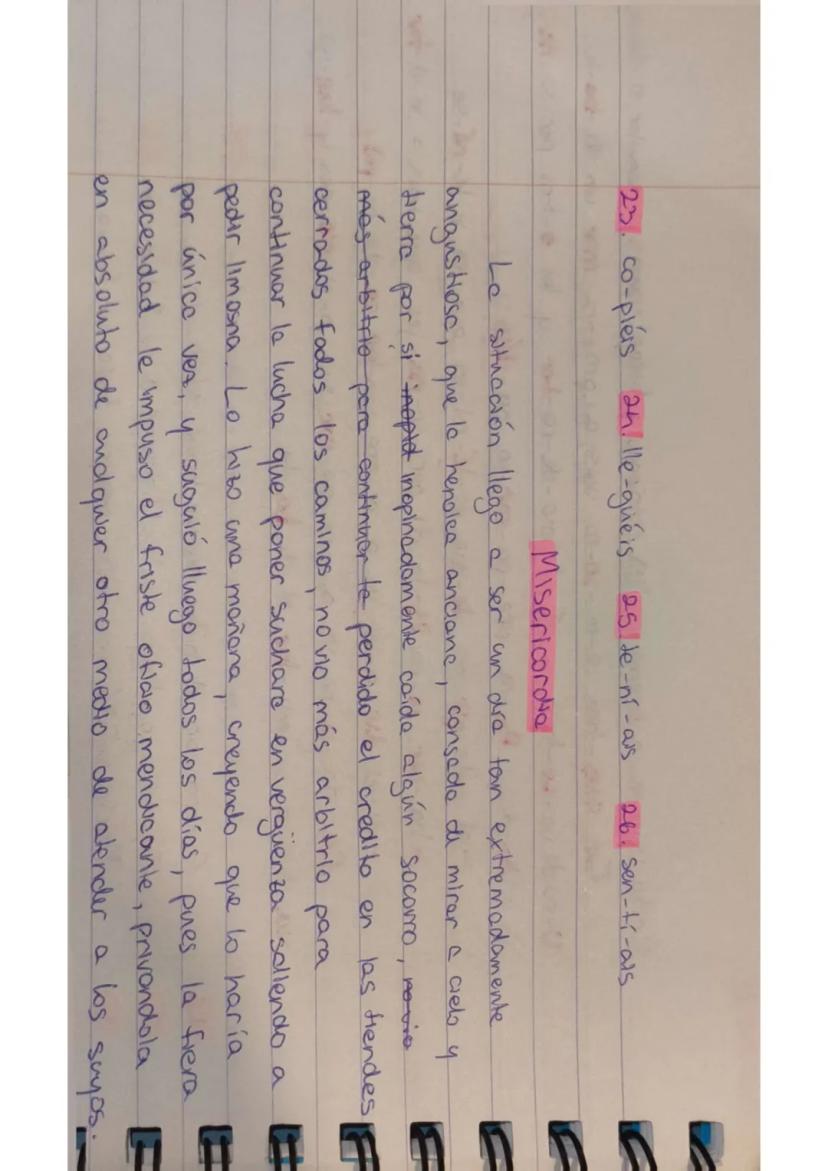 23. co-pléis 24. lle-guéis 25. te-ní-ais 26. sen-tí-ais
Misericordia
La situación llego a ser un día tan extremadamente
angustiosa, que la heroica anciana, cansada de mirar a cielo y
tierra por si inopinadamente caída algún socorro, no vio
más arbitrio para continuar la perdido el credito en las tiendas
cerrados todos los caminos, no vio más arbitrio para
continuar la lucha que poner su chara en vergüenza saliendo a
pedir limosna. Lo hizo una mañana, creyendo que lo haría
por única vez, y siguió lluego todos los días, pues la fiera
necesidad le impuso el triste oficio mendicante, privandola
en absoluto de cualquier otro medio de atender a los suyos.